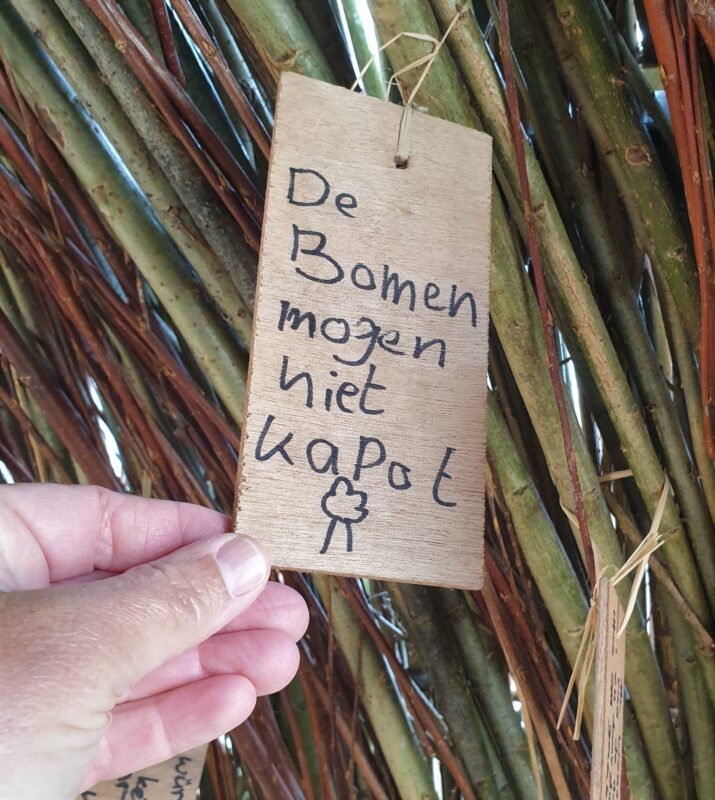 De
Bomen
mogen
niet
kapot